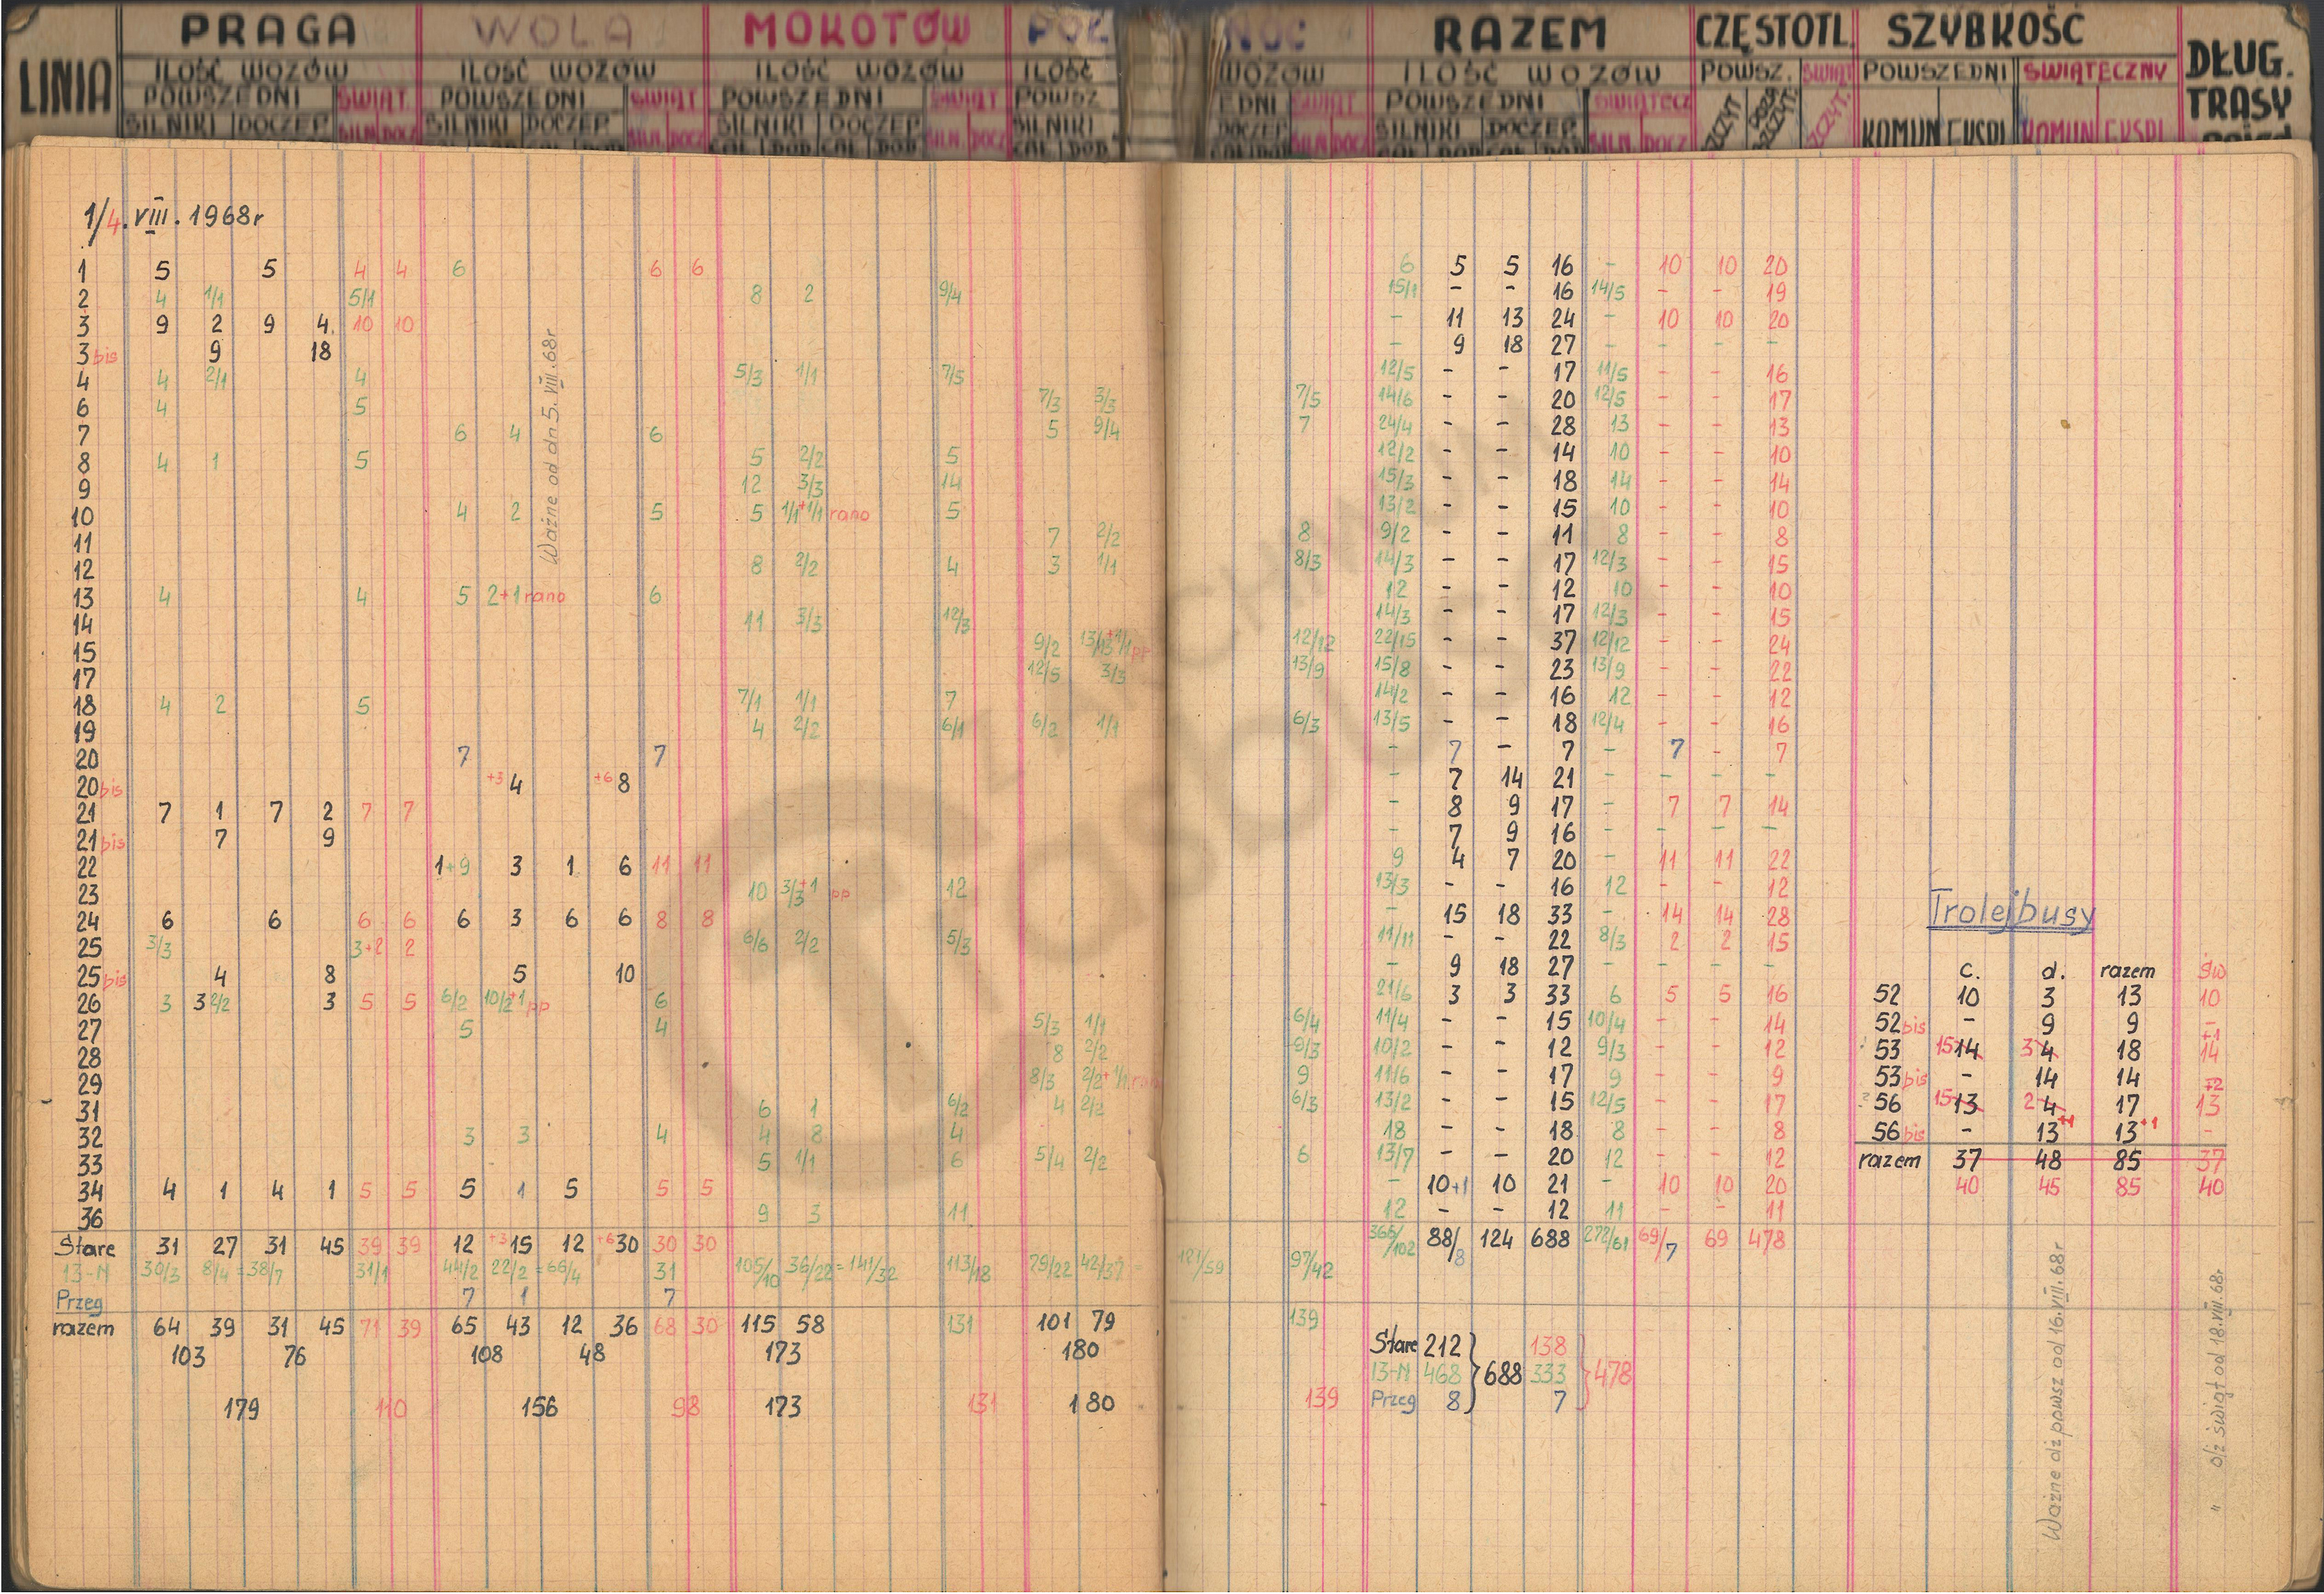 LINIA PRAGA WOLA MOKOTÓW PÓŁ NOC RAZEM CZĘSTOTL. SZYBKOŚĆ DŁUG. TRASY
ILOŚĆ WOZÓW ILOŚĆ WOZÓW ILOŚĆ WOZÓW ILOŚĆ WOZÓW ILOŚĆ WOZÓW POWSZ. ŚWIĄT POWSZEDNI ŚWIĄTECZNY
POWSZEDNI ŚWIĄT. POWSZEDNI ŚWIĄT POWSZEDNI ŚWIĄT POWSZ EDNI ŚWIĄT POWSZEDNI ŚWIĄTECZ
SILNIKI DOCZEP SILN. DOCZ SILNIKI DOCZEP SILN. DOCZ SILNIKI DOCZEP SILN. DOCZ SILNIKI DOCZEP SILN. DOCZ SILNIKI DOCZEP SILN. DOCZ SZCZYT SZCZYT KOMUN EKSPL KOMUN EKSPL
1/4. VIII. 1968r
1 5 5 4 4 6 6 6 6 5 5 16 - 10 10 20
2 4 1/1 5/1 8 2 9/4 15/1 - - 16 14/5 - - 19
3 9 2 9 4. 10 10 - 11 13 24 - 10 10 20
3 bis 9 18 - 9 18 27 - - - -
4 4 2/1 4 5/3 1/1 7/5 12/5 - - 17 11/5 - - 16
6 4 5 7/3 3/3 7/5 14/6 - - 20 12/5 - - 17
7 6 4 6 5 9/4 7 24/4 - - 28 13 - - 13
8 4 1 5 5 2/2 5 12/2 - - 14 10 - - 10
9 12 3/3 14 15/3 - - 18 14 - - 14
10 4 2 5 5 1/1+1/1 rano 5 13/2 - - 15 10 - - 10
11 7 2/2 8 9/2 - - 11 8 - - 8
12 8 2/2 4 3 1/1 8/3 14/3 - - 17 12/3 - - 15
13 4 4 5 2+1 rano 6 12 - - 12 10 - - 10
14 11 3/3 12/3 14/3 - - 17 12/3 - - 15
15 9/2 13/13+1/1 pp 12/12 22/15 - - 37 12/12 - - 24
17 12/5 3/3 13/9 15/8 - - 23 13/9 - - 22
18 4 2 5 7/1 1/1 7 14/2 - - 16 12 - - 12
19 4 2/2 6/1 6/2 1/1 6/3 13/5 - - 18 12/4 - - 16
20 7 7 - 7 - 7 - 7 - 7
20 bis +3 4 +6 8 - 7 14 21 - - - -
21 7 1 7 2 7 7 - 8 9 17 - 7 7 14
21 bis 7 9 - 7 9 16 - - - -
22 1+9 3 1 6 11 11 9 4 7 20 - 11 11 22
23 10 3/3+1 pp 12 13/3 - - 16 12 - - 12
24 6 6 6 6 6 3 6 6 8 8 - 15 18 33 - 14 14 28
25 3/3 3+2 2 6/6 2/2 5/3 11/11 - - 22 8/3 2 2 15
25 bis 4 8 5 10 - 9 18 27 - - - -
26 3 3 2/2 3 5 5 6/2 10/2+1 pp 6 21/6 3 3 33 6 5 5 16
27 5 4 5/3 1/1 6/4 11/4 - - 15 10/4 - - 14
28 8 2/2 9/3 10/2 - - 12 9/3 - - 12
29 8/3 2/2+1/1 rano 9 11/6 - - 17 9 - - 9
31 6 1 6/2 4 2/2 6/3 13/2 - - 15 12/5 - - 17
32 3 3 4 4 8 4 18 - - 18 8 - - 8
33 5 1/1 6 5/4 2/2 6 13/7 - - 20 12 - - 12
34 4 1 4 1 5 5 5 1 5 5 5 - 10+1 10 21 - 10 10 20
36 9 3 11 12 - - 12 11 - - 11
Stare 31 27 31 45 39 39 12 +3 15 12 +6 30 30 30 366/102 88/8 124 688 272/61 69/7 69 478
13-N 30/3 8/4 = 38/7 31/1 44/2 22/2 = 66/4 31 105/10 36/22 = 141/32 113/18 79/22 42/37 = 121/59 97/42
Przeg 7 1 7
razem 64 39 31 45 71 39 65 43 12 36 68 30 115 58 131 101 79 139
103 76 108 48 173 180
179 110 156 98 173 131 180 139
Stare 212 138
13-N 468 688 333 478
Przeg 8 7
Ważne od dn 5. VIII. 68r
Trolejbusy
c. d. razem św
52 10 3 13 10
52 bis - 9 9 -
53 15 14 3 4 18 +1 14
53 bis - 14 14
56 15 13 2 4 17 +2 13
56 bis - 13 +1 13 +1 -
razem 37 48 85 37
40 45 85 40
Ważne dż powsz od 16. VIII. 68r
" d/ż świąt od 18. VIII. 68r